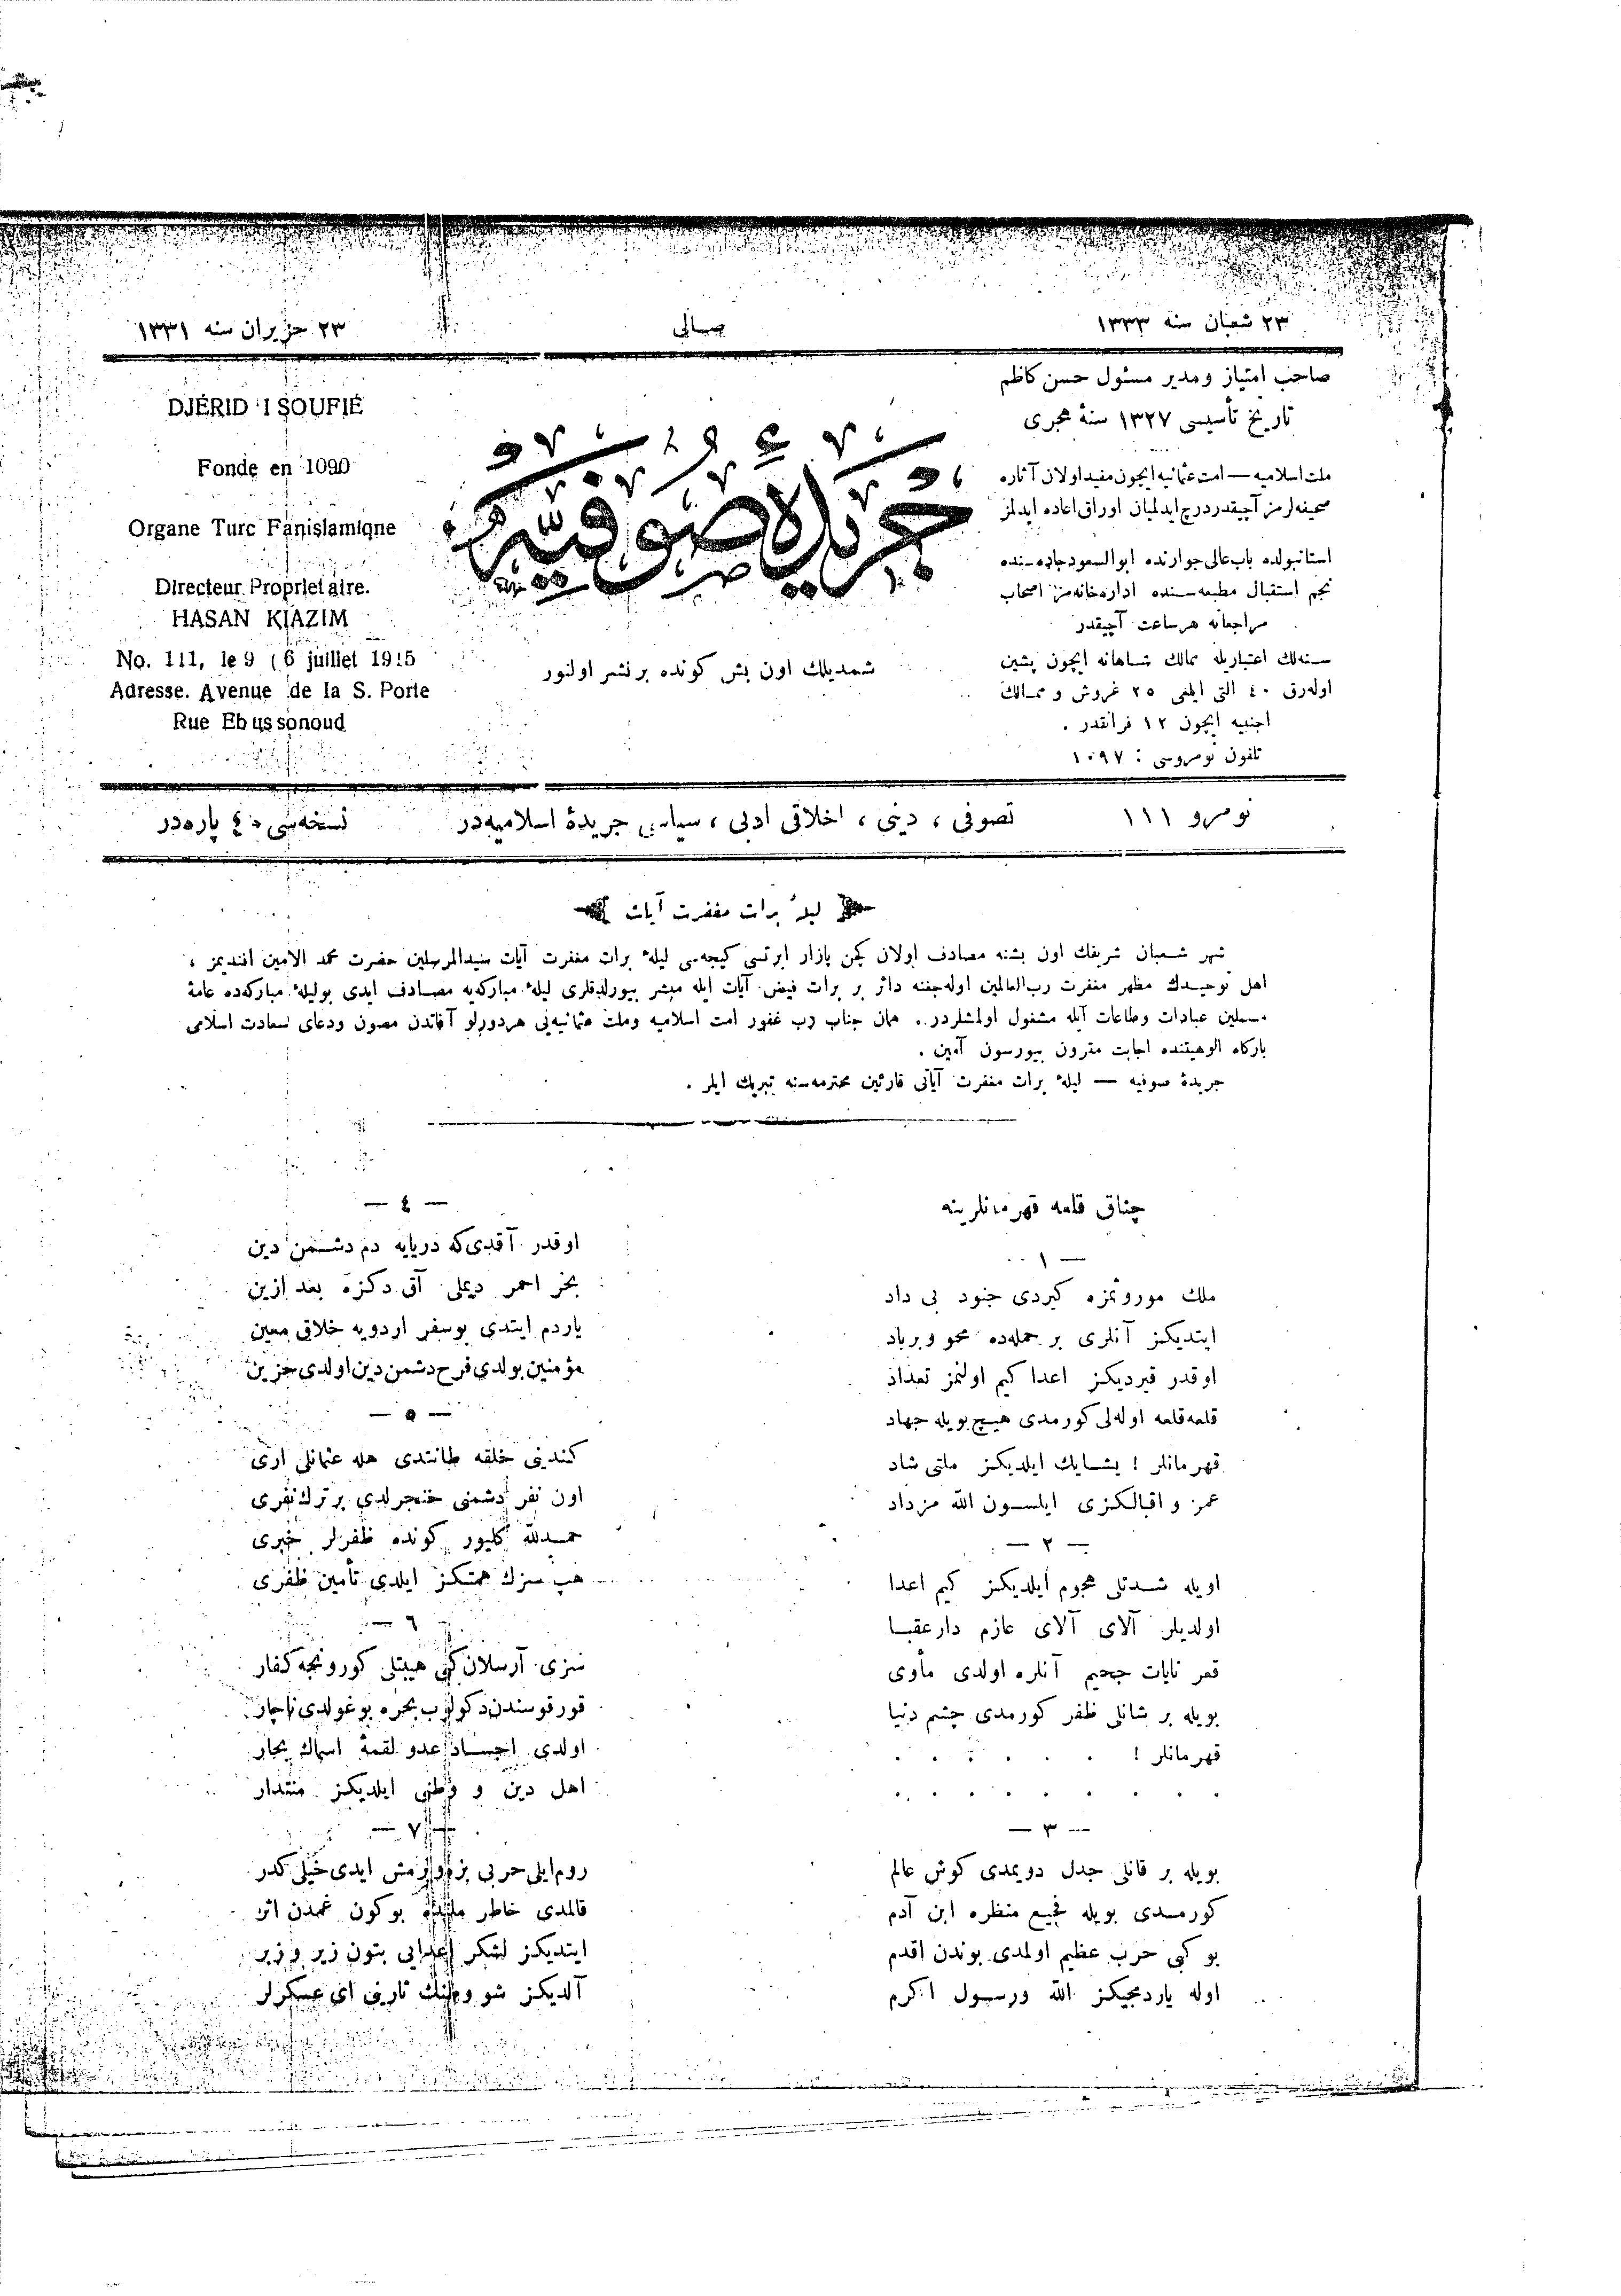 ٢٣ شعبان سنه ١٣٣٣
صالی
٢٣ حزيران سنه ١٣٣١
صاحب امتياز ومدير مسئول حسن كاظم
تاريخ تأسيسی ١٣٢٧ سنۀ هجری
ملت اسلاميه — امت عثمانيه ايچون مفيد اولان آثاره
صحيفه‌لرمز آچيقدر درج ايدلميان اوراق اعاده ايدلمز
استانبولده باب عالی جوارنده ابوالسعود جاده‌سنده
نجم استقبال مطبعه‌سنده اداره‌خانه‌مز اصحاب
مراجعاته هر ساعت آچيقدر
سنه‌لك اعتباريله ممالك شاهانه ايچون پشين
اوله‌رق ٤٠ التی ايلغی ٢٥ غروش و ممالك
اجنبيه ايچون ١٢ فرانقدر .
تلفون نومروسی : ١٠٩٧
جريدۀ صوفيه
شمديلك اون بش كونده بر نشر اولنور
DJÉRID 'I SOUFIÉ
Fonde en 1090
Organe Turc Fanislamiqne
Directeur Proprietaire.
HASAN KIAZIM
No. 111, le 9 (6 juillet 1915
Adresse. Avenue de la S. Porte
Rue Ebussonoud
نومرو ١١١
تصوفی ، دينی ، اخلاقی ادبی ، سياسی جريدۀ اسلاميه‌در
نسخه‌سی ٤٠ پاره‌در
ليلۀ برات مغفرت آيات
شهر شعبان شريفك اون بشنه مصادف اولان كچن پازار ايرتسی كيجه‌سی ليلۀ برات مغفرت آيات سيدالمرسلين حضرت محمد الامين افنديمز ،
اهل توحيدك مظهر مغفرت رب‌العالمين اوله‌جغنه دائر بر برات فيض آيات ايله مبشر بيورلدقلری ليلۀ مباركه‌يه مصادف ايدی بوليلۀ مباركه‌ده عامۀ
مسلمين عبادات وطاعات ايله مشغول اولمشلردر . همان جناب رب غفور امت اسلاميه وملت عثمانيه‌يی هر دورلو آفاتدن مصون ودعای سعادت اسلامی
بارگاه الوهيتنده اجابت مقرون بيورسون آمين .
جريدۀ صوفيه — ليلۀ برات مغفرت آياتی قارئين محترمه‌سنه تبريك ايلر .
چناق قلعه قهرمانلرينه
— ١ —
ملك موروثمزه كيردی جنود بی داد
ايتديكز آنلری بر حمله‌ده محو و برباد
اوقدر قيرديكز اعدا كيم اولنمز تعداد
قلعه قلعه اوله‌لی كورمدی هيچ بويله جهاد
قهرمانلر ! يشايك ايلديكز ملتی شاد
عمر و اقبالكزی ايلسون الله مزداد
— ٢ —
اويله شدتلی هجوم ايلديكز كيم اعدا
اولديلر آلای آلای عازم دار عقبا
قعر نايات جحيم آنلره اولدی مأوی
بويله بر شانلی ظفر كورمدی چشم دنيا
قهرمانلر ! . . . . . .
. . . . . . . . .
— ٣ —
بويله بر قانلی جدل دويمدی كوش عالم
كورمدی بويله فجيع منظره ابن آدم
بو كبی حرب عظيم اولمدی بوندن اقدم
اوله ياردمجيكز الله ورسول اكرم
— ٤ —
اوقدر آقدی كه دريايه دم دشمن دين
بحر احمر ديملی آق دكزه بعد ازين
ياردم ايتدی بوسفر اردويه خلاق معين
مؤمنين بولدی فرح دشمن دين اولدی حزين
— ٥ —
كنديی خلقه طانتدی هله عثمانلی اری
اون نفر دشمنی خنجرلدی بر ترك نفری
حمدلله كليور كونده ظفرلر خبری
هپ سزك همتكز ايلدی تأمين ظفری
— ٦ —
سزی آرسلان كبی هيبتلی كورونجه كفار
قورقوسندن دكولوب بحره بوغولدی ناچار
اولدی اجساد عدو لقمۀ اسماك بحار
اهل دين و وطنی ايلديكز منتدار
— ٧ —
روم ايلی حربی بزه ويرمش ايدی خيلی كدر
قالمدی خاطر ملتده بوكون غمدن اثر
ايتديكز لشكر اعدايی بتون زير و زبر
آلديكز شو وطنك ثارينی ای عسكرلر